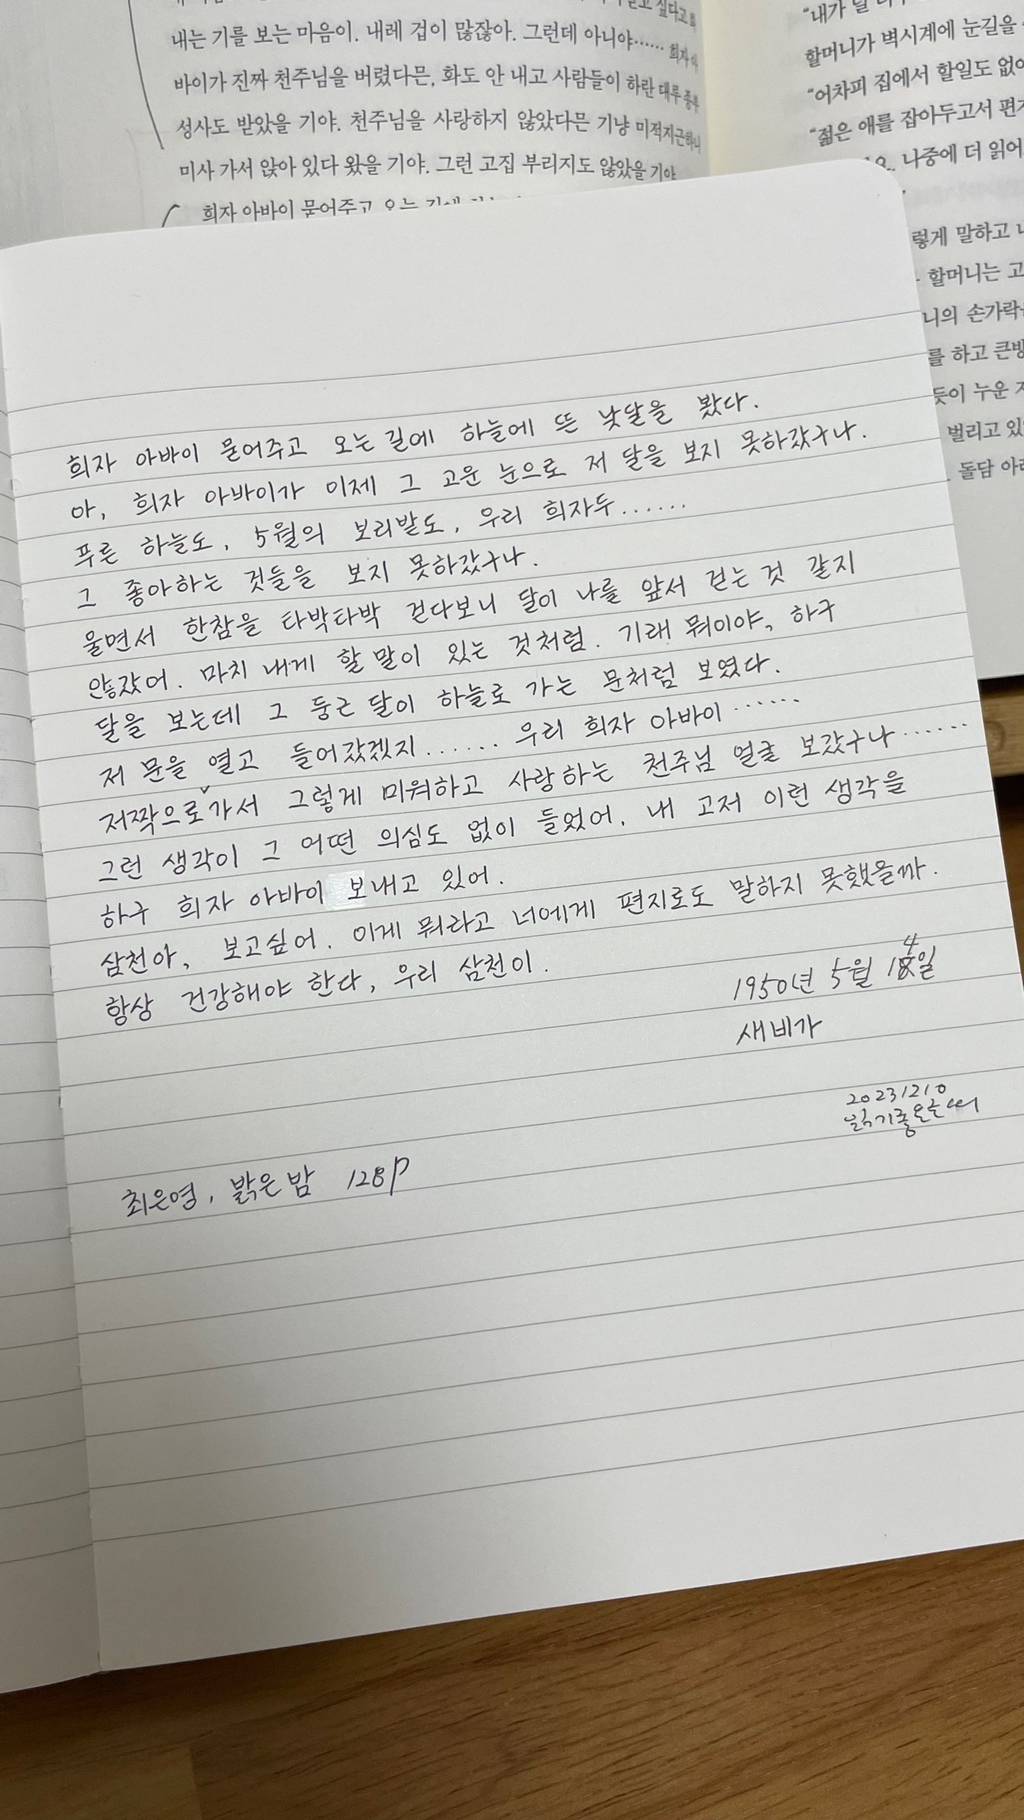 내는 기를 보는 마음이. 내레 겁이 많잖아. 그런데 아니야…… 희자 아
바이가 진짜 천주님을 버렸다믄, 화도 안 내고 사람들이 하란 대루 종부
성사도 받았을 기야. 천주님을 사랑하지 않았다믄 기냥 미적지근하니
미사 가서 앉아 있다 왔을 기야. 그런 고집 부리지도 않았을 기야
희자 아바이 묻어주고 오는 길에
"내가 널
할머니가 벽시계에 눈길을
"어차피 집에서 할일도 없어
"젊은 애를 잡아두고서 편지
나중에 더 읽어
렇게 말하고
할머니는 고
니의 손가락
를 하고 큰방
듯이 누운
벌리고 있
돌담 아래
희자 아바이 묻어주고 오는 길에 하늘에 뜬 낮달을 봤다.
아, 희자 아바이가 이제 그 고운 눈으로 저 달을 보지 못하갔구나.
푸른 하늘도, 5월의 보리밭도, 우리 희자두……
그 좋아하는 것들을 보지 못하갔구나.
울면서 한참을 타박타박 걷다보니 달이 나를 앞서 걷는 것 같지
않갔어. 마치 내게 할 말이 있는 것처럼. 기래 뭐이야, 하구
달을 보는데 그 둥근 달이 하늘로 가는 문처럼 보였다.
저 문을 열고 들어갔겠지…… 우리 희자 아바이……
저짝으로 가서 그렇게 미워하고 사랑하는 천주님 얼굴 보갔구나……
그런 생각이 그 어떤 의심도 없이 들었어. 내 고저 이런 생각을
하구 희자 아바이 보내고 있어.
삼천아, 보고싶어. 이게 뭐라고 너에게 편지로도 말하지 못했을까.
항상 건강해야 한다, 우리 삼천이.
1950년 5월 14일
새비가
20231210
읽기좋은손씨
최은영, 밝은밤 128p